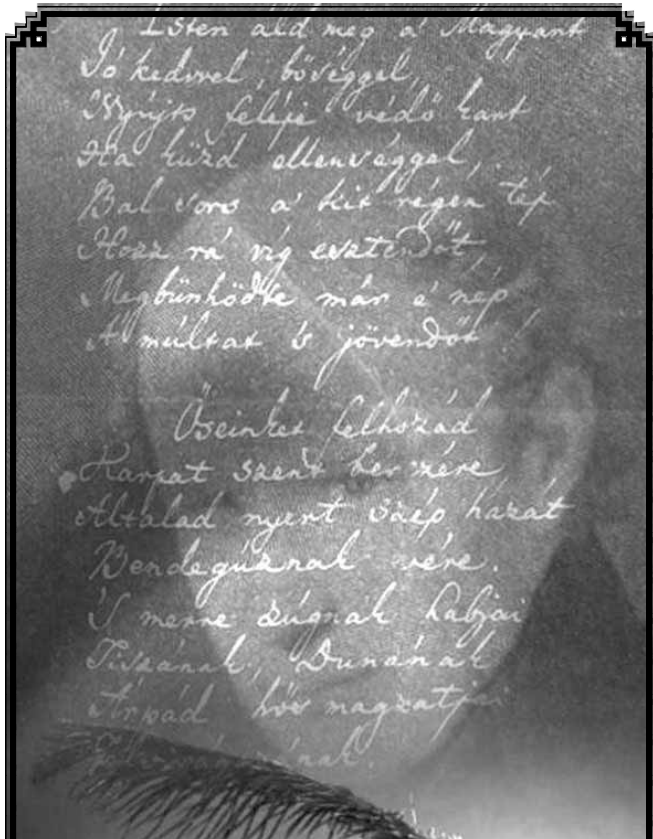 Isten áld meg a' Magyart
Jó kedvvel, bőséggel,
Nyújts feléje védő kart
Ha küzd ellenséggel,
Bal sors a' kit régen tép
Hozz rá víg esztendőt,
Megbünhödte már e' nép
A' múltat 's jövendőt!
Őseinket felhozád
Kárpát szent bérczére
Általad nyert szép hazát
Bendegúznak vére.
'S merre zúgnak habjai
Tiszának, Dunának
Árpád hős magzatjai